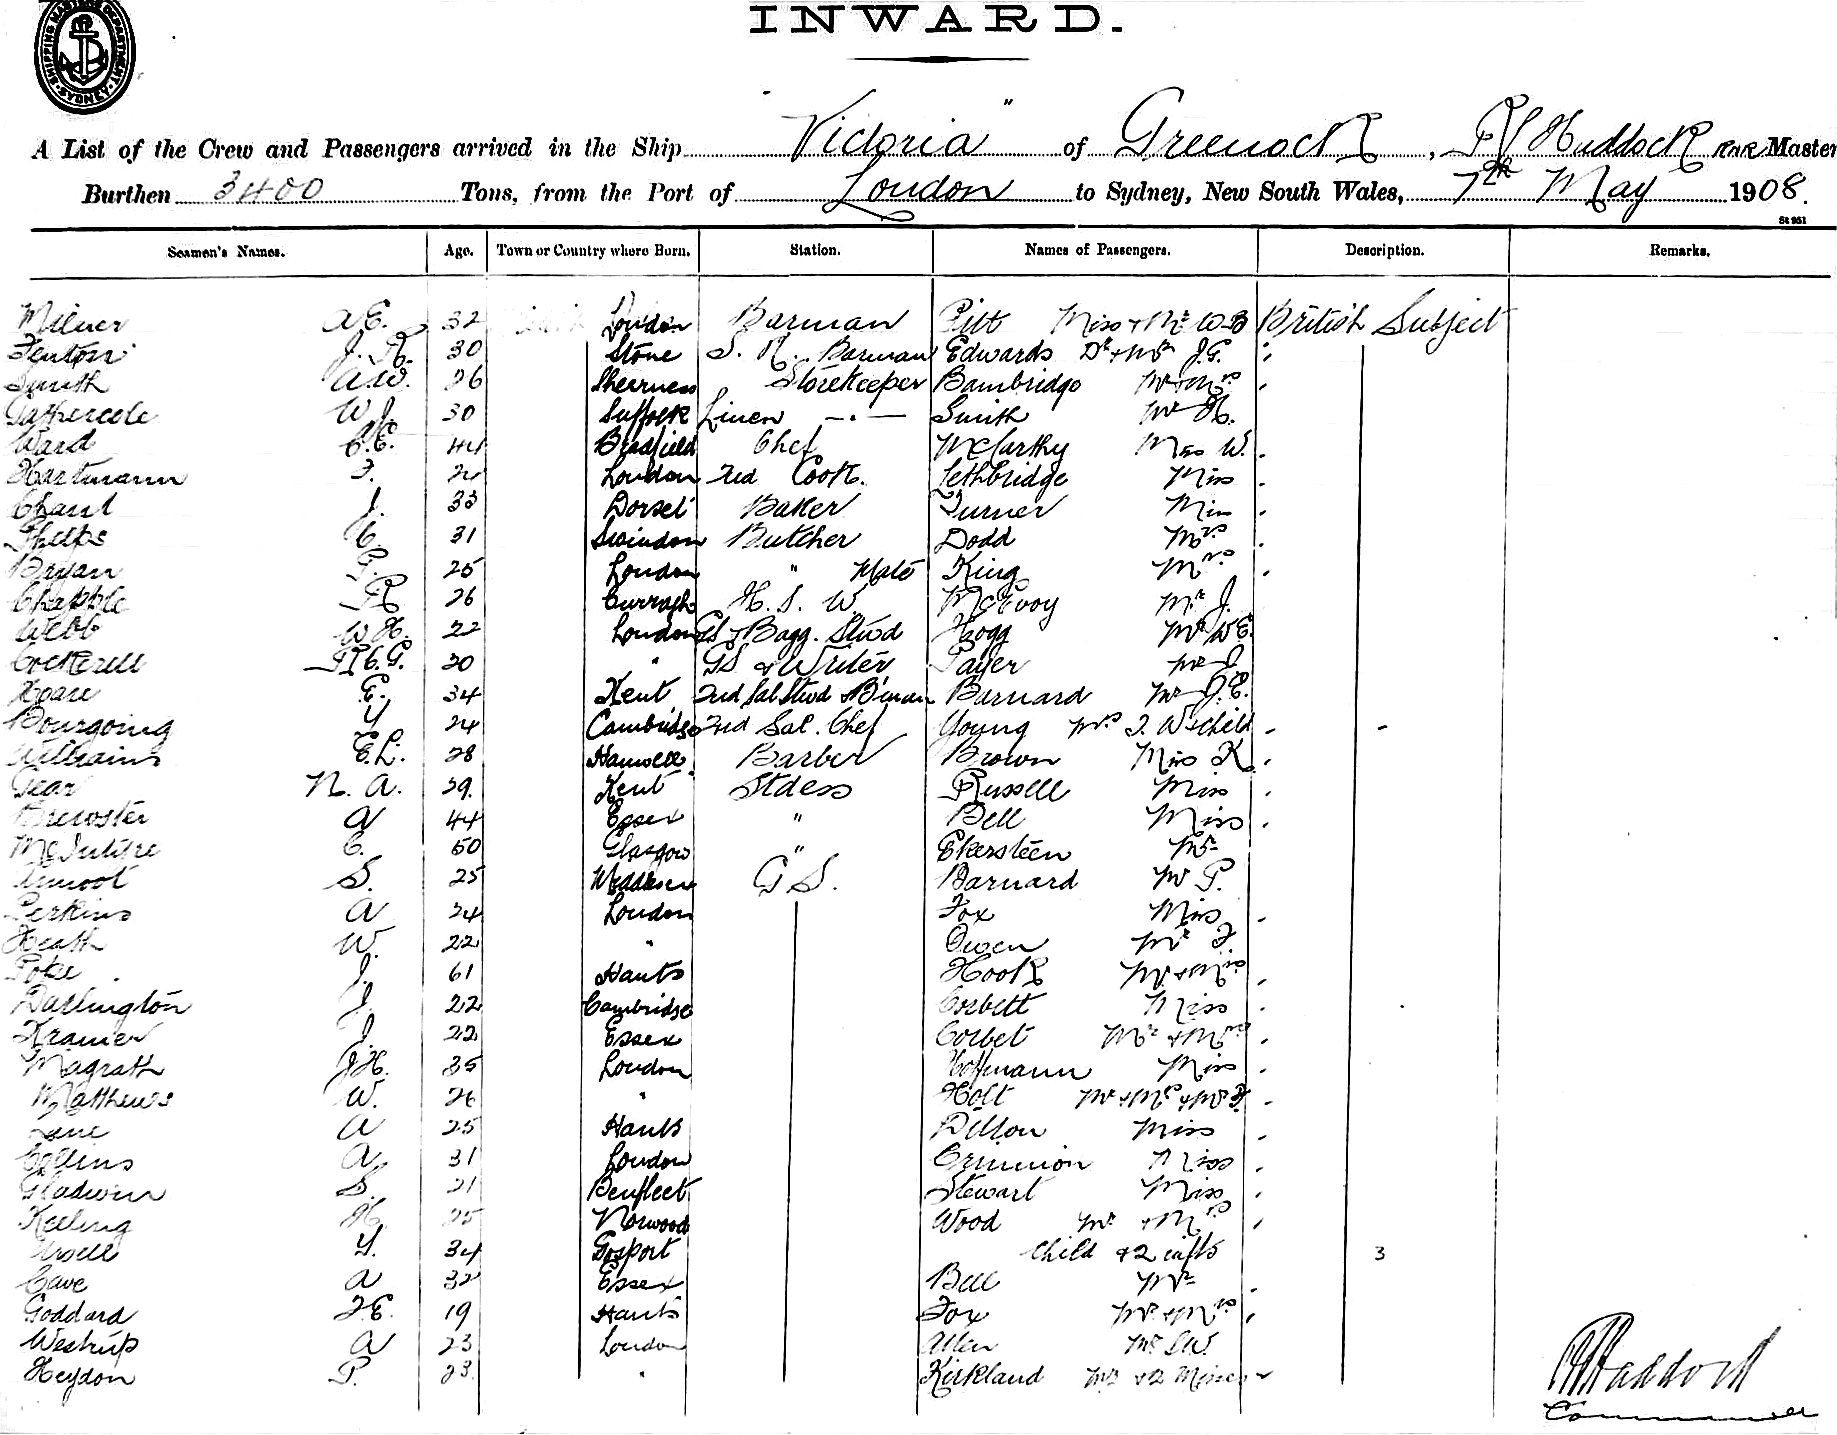 SHIPPING MASTERS DEPARTMENT SYDNEY
INWARD.
A List of the Crew and Passengers arrived in the Ship "Victoria" of Greenock, Haddock RNR Master
Burthen 3400 Tons, from the Port of London to Sydney, New South Wales, 7th May 1908.
St 951
Seamen's Names. Age. Town or Country where Born. Station. Names of Passengers. Description. Remarks.
Milner A.E. 32 London Barman Pitt Miss + Mr W.B British Subject
Fenton J.R. 30 Stone S.R. Barman Edwards Dr + Mrs J.G. "
Smith A.W. 26 Sheerness Storekeeper Bambridge Mr + Mrs "
Tathercole W.J. 30 Suffolk Linen — " — Smith Mr H.
Ward C.E. 44 Bradfield Chef McCarthy Miss W. "
Hartmann F. London 2nd Cook. Lethbridge Miss "
Chant J. 33 Dorset Baker Turner Miss "
Phelps C. 31 Swindon Butcher Dodd Mrs "
Bryan P. 25 London " Mate King Mrs "
Chapple R 26 Curragh H.S.W. McEvoy Mr J.
Webb W.H. 22 London GS + Bagg. Stwd Hogg Mr W.E.
Cockerell C.G. 30 " GS & Writer Payer Mr J.
Hoare E. 34 Kent 2nd Sal Stwd & B'man Barnard Mr J.E.
Bourgoing Y 24 Cambridge 2nd Sal. Chef Young Mrs J. W + child "
Williams E.L. 28 Hanwell Barber Brown Miss K. "
Dear N.A. 39. Kent Stdess Russell Miss "
Brewster A 44 Essex " Bell Miss "
McIntyre C. 50 Glasgow " Ekersteen Mr
Amoot S. 25 Middlesex G S. Barnard Mr P.
Perkins A 24 London Fox Miss "
Heath W. 22 " Owen Mr F.
J. 61 Hants Hook Mr + Mrs "
Darlington J. 22 Cambridge Corbett Miss "
Kramer J. 22 Essex Corbet Mr + Mrs "
Magrath J.H. 35 London Hoffmann Miss "
Matthews W. 26 " Holt Mr + Mrs + Mr F. "
Lane A 25 Hants Dillon Miss "
Collins A. 31 London Crimmion Miss "
Gladwin S. 21 Benfleet Stewart Miss "
Keeling H. 25 Norwood Wood Mr + Mrs "
Ursell Y. 34 Gosport Child & 2 infts 3
Cave A 32 Essex Bell Mr "
Goddard F.E. 19 Hants Fox Mr + Mrs "
Westrup A 23 London Allen Mr S.W.
Heydon P. 23. " Kirkland Mr & 2 Misses "
Haddock
Commander